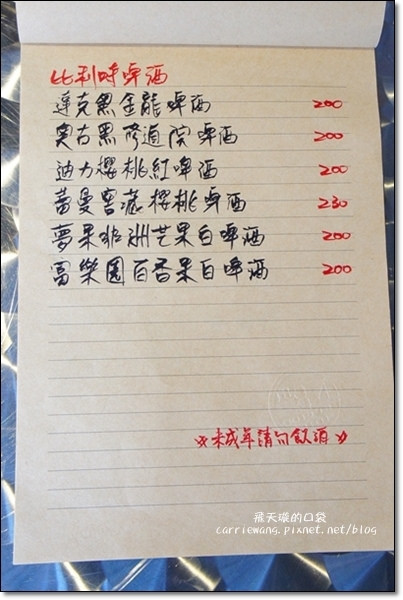 比利時啤酒
達克黑金龍啤酒 200
奧古黑修道院啤酒 200
迪力櫻桃紅啤酒 200
蕾曼窖藏櫻桃啤酒 230
夢果非洲芒果白啤酒 200
富樂園百香果白啤酒 200
※未成年請勿飲酒※
飛天璇的口袋
carriewang.pixnet.net/blog